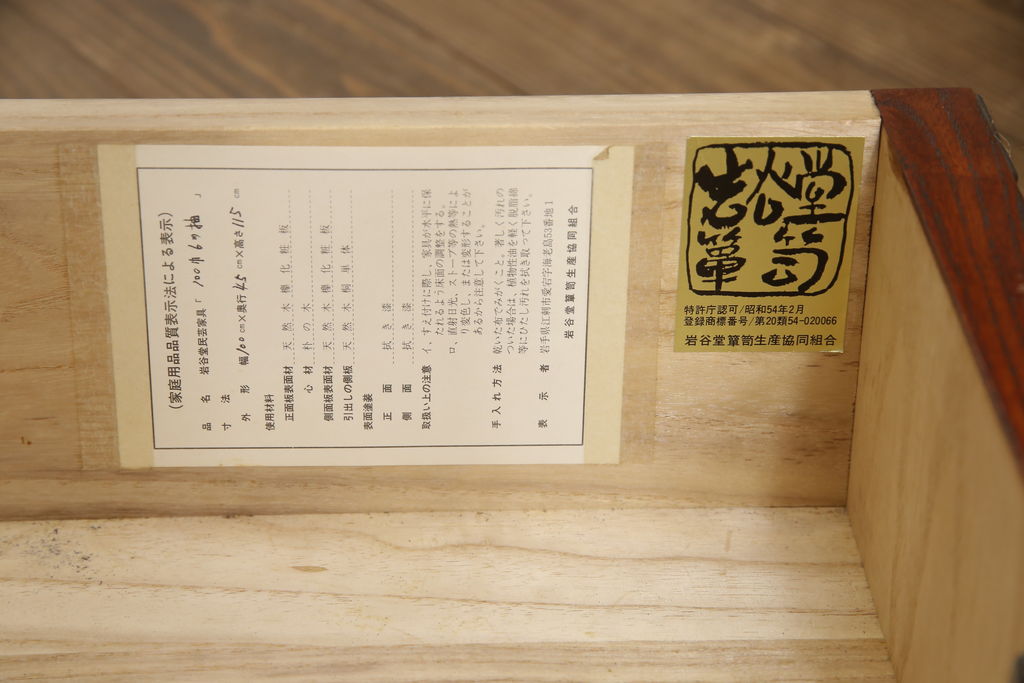 (家庭用品品質表示法による表示)
品名 岩谷堂民芸家具「100巾6ツ抽」
寸法
外形 幅100cm×奥行45cm×高さ115cm
使用材料
正面板表面材 天然木欅化粧板
心材 朴の木
側面板表面材 天然木欅化粧板
引出しの側板 天然木桐単体
表面塗装
正面 拭き漆
側面 拭き漆
取扱い上の注意 イ、すえ付けに際し、家具が水平に保
たれるよう床面の調整をする。
ロ、直射日光、ストーブ等の熱等によ
り変色し、または変形することが
あるから注意して下さい。
手入れ方法 乾いた布でみがくこと。著しく汚れの
ついた場合は、植物性油を軽く脱脂綿
等にひたし汚れを拭き取って下さい。
表示者 岩手県江刺市愛宕字海老島53番地1
岩谷堂簞笥生産協同組合
岩谷堂
簞笥
特許庁認可/昭和54年2月
登録商標番号/第20類54-020066
岩谷堂簞笥生産協同組合